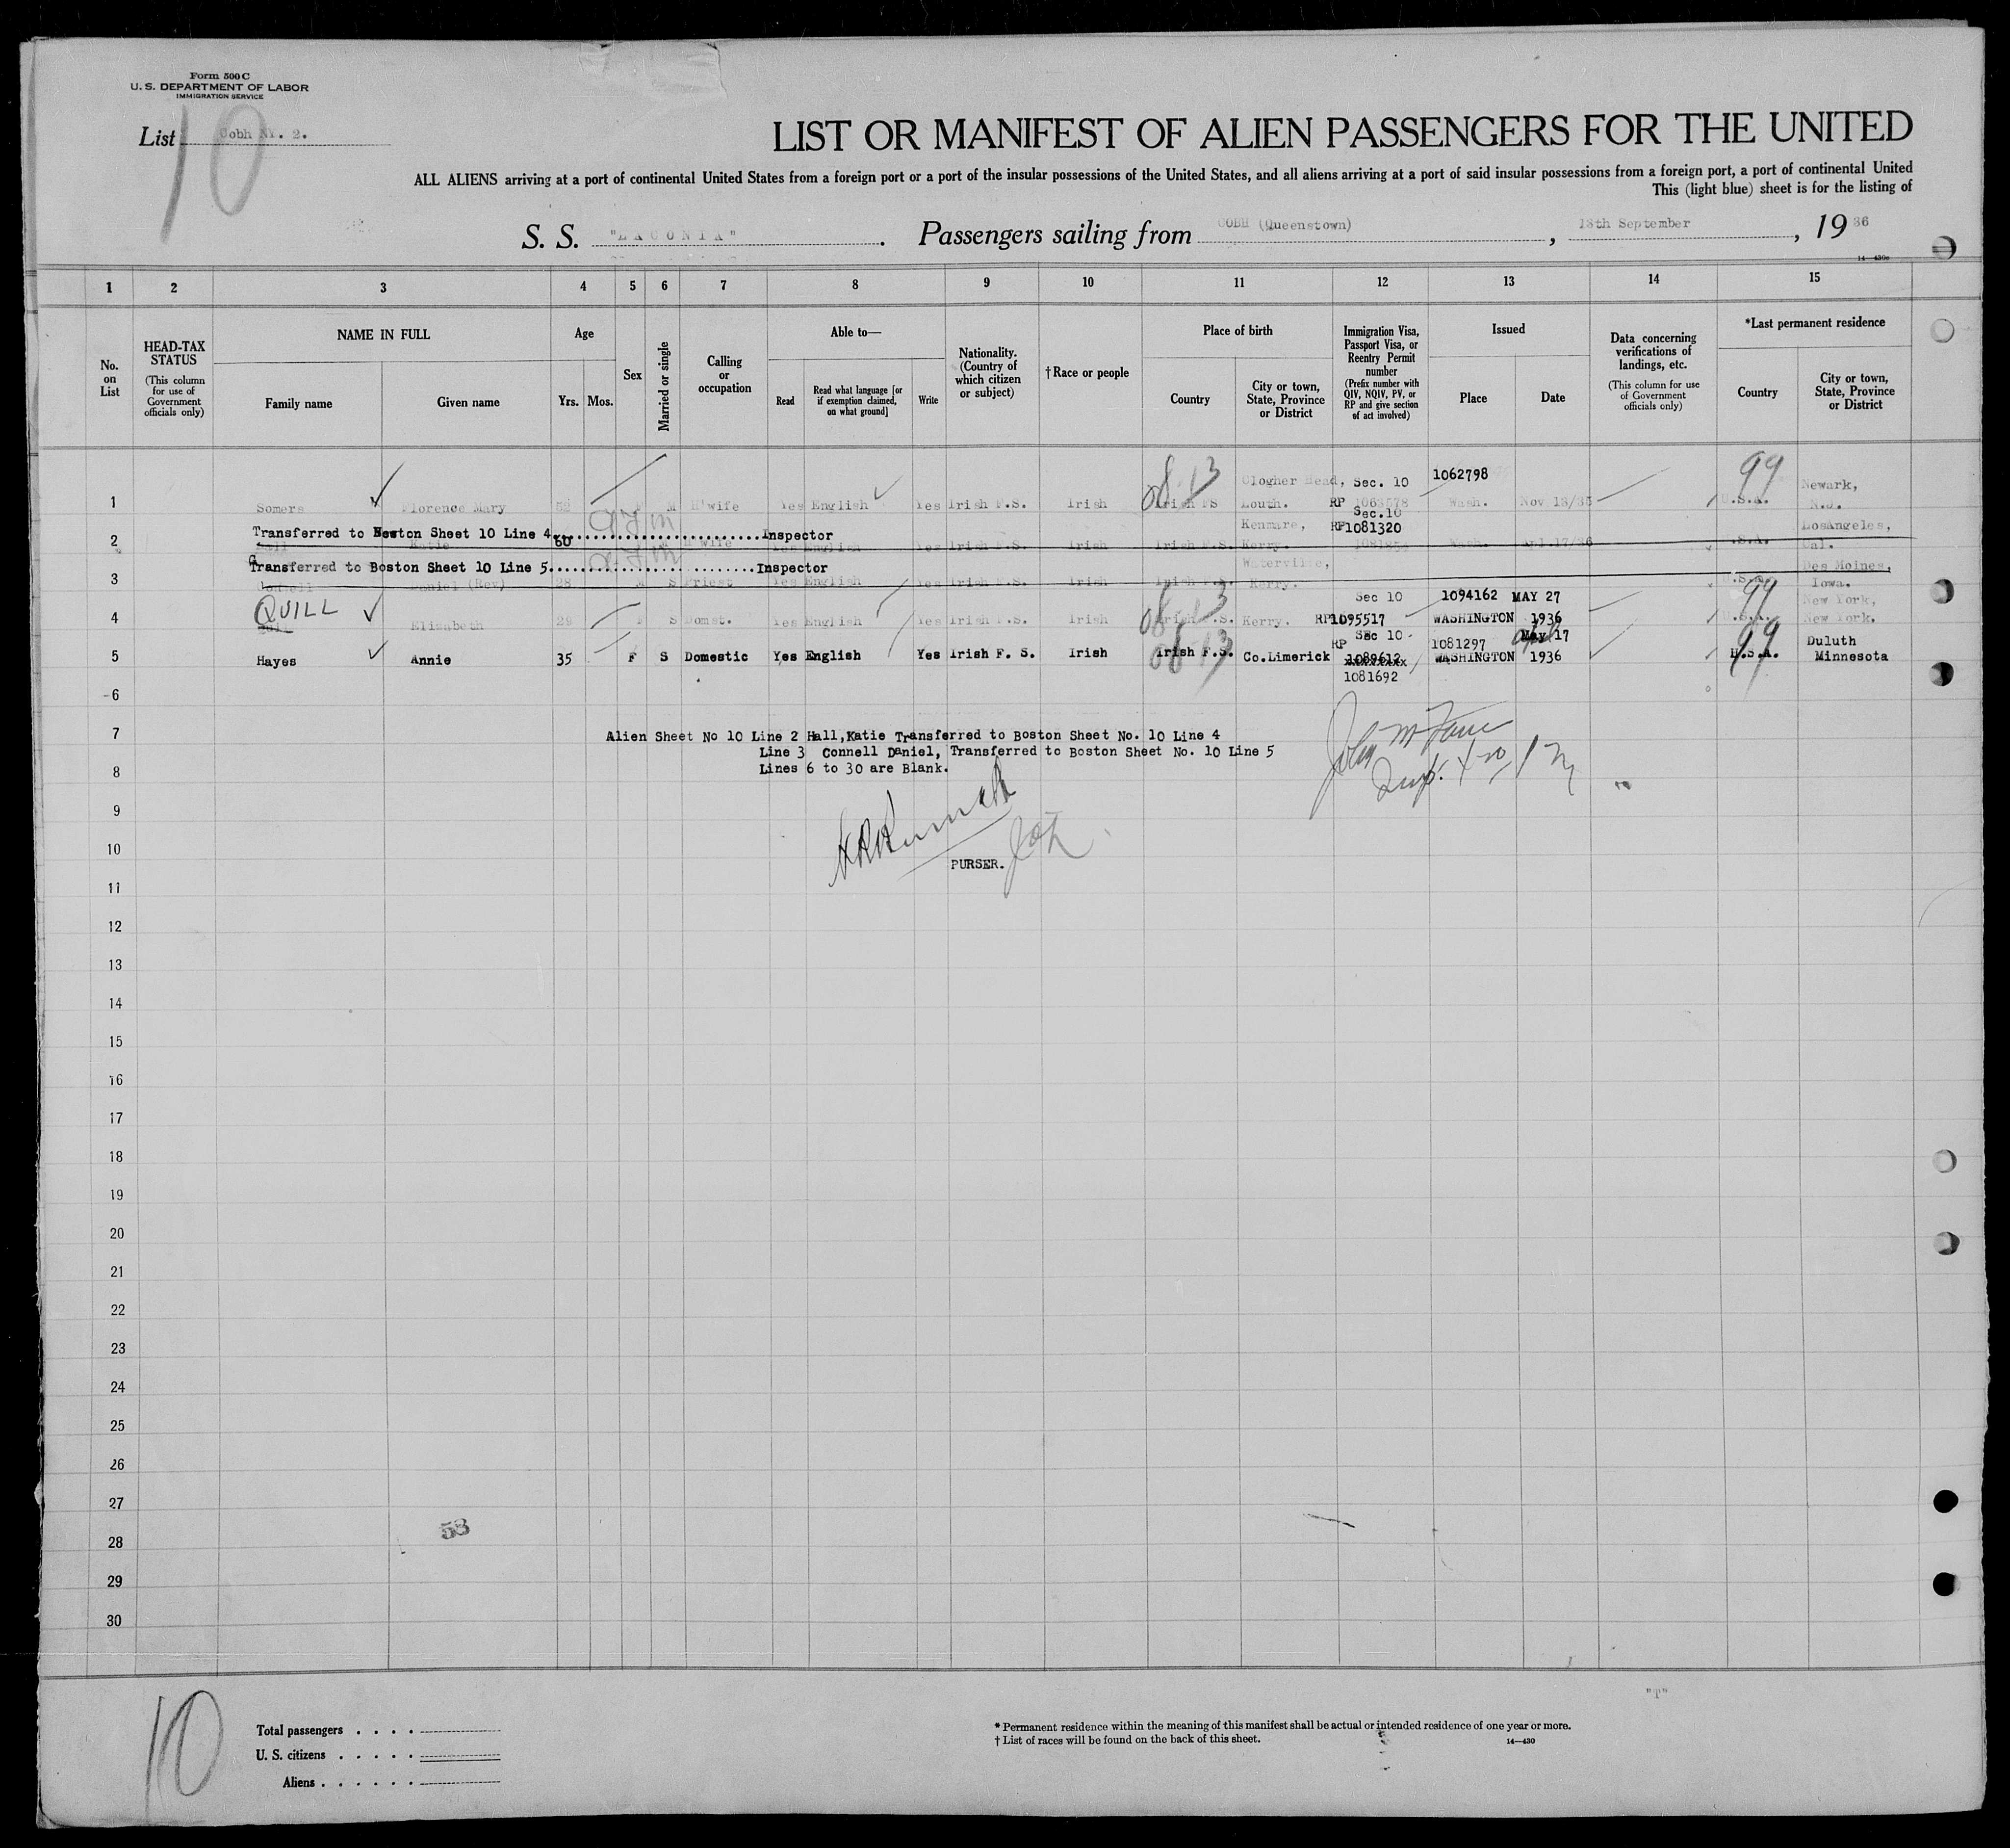 Form 500 C
U. S. DEPARTMENT OF LABOR
IMMIGRATION SERVICE
List Cobh Nr. 2.
10
LIST OR MANIFEST OF ALIEN PASSENGERS FOR THE UNITED
ALL ALIENS arriving at a port of continental United States from a foreign port or a port of the insular possessions of the United States, and all aliens arriving at a port of said insular possessions from a foreign port, a port of continental United
This (light blue) sheet is for the listing of
S. S. "LACONIA". Passengers sailing from COBH (Queenstown), 13th September, 1936
14—430c
1 2 3 4 5 6 7 8 9 10 11 12 13 14 15
No. on List
HEAD-TAX STATUS (This column for use of Government officials only)
NAME IN FULL
Family name Given name
Age
Yrs. Mos.
Sex
Married or single
Calling or occupation
Able to—
Read Read what language [or if exemption claimed, on what ground] Write
Nationality. (Country of which citizen or subject)
†Race or people
Place of birth
Country City or town, State, Province or District
Immigration Visa, Passport Visa, or Reentry Permit number (Prefix number with QIV, NQIV, PV, or RP and give section of act involved)
Issued
Place Date
Data concerning verifications of landings, etc. (This column for use of Government officials only)
*Last permanent residence
Country City or town, State, Province or District
Clogher Head, Sec. 10 1062798 99 Newark,
1 Somers Florence Mary 52 F M H'wife Yes English Yes Irish F.S. Irish Irish FS Louth. RP 1063578 Wash. Nov 13/35 U.S.A. N.J.
Sec.10
Transferred to Boston Sheet 10 Line 4 Inspector Kenmare, RP1081320 LosAngeles,
2 Hall Katie 60 M H'wife Yes English Yes Irish F.S. Irish Irish F.S. Kerry. Wash. Apl.17/36 U.S.A. Cal.
Transferred to Boston Sheet 10 Line 5 Inspector Waterville, Des Moines,
3 Connell Daniel (Rev) 28 M S Priest Yes English Yes Irish F.S. Irish Irish F.S. Kerry. U.S.A. Iowa.
QUILL Sec 10 1094162 MAY 27 99 New York,
4 Elizabeth 29 F S Domst. Yes English Yes Irish F.S. Irish Irish F.S. Kerry. RP1095517 WASHINGTON 1936 U.S.A. New York.
Sec 10 1081297 May 17 99 Duluth
5 Hayes Annie 35 F S Domestic Yes English Yes Irish F. S. Irish Irish F.S. Co.Limerick RP 1089612 WASHINGTON 1936 U.S.A. Minnesota
1081692
6
7 Alien Sheet No 10 Line 2 Hall,Katie Transferred to Boston Sheet No. 10 Line 4
Line 3 Connell Daniel, Transferred to Boston Sheet No. 10 Line 5
8 Lines 6 to 30 are Blank.
9
10 PURSER.
11
12
13
14
15
16
17
18
19
20
21
22
23
24
25
26
27
53
28
29
30
"T"
10
Total passengers . . . .
U. S. citizens . . . . .
Aliens . . . . . .
* Permanent residence within the meaning of this manifest shall be actual or intended residence of one year or more.
† List of races will be found on the back of this sheet. 14—430